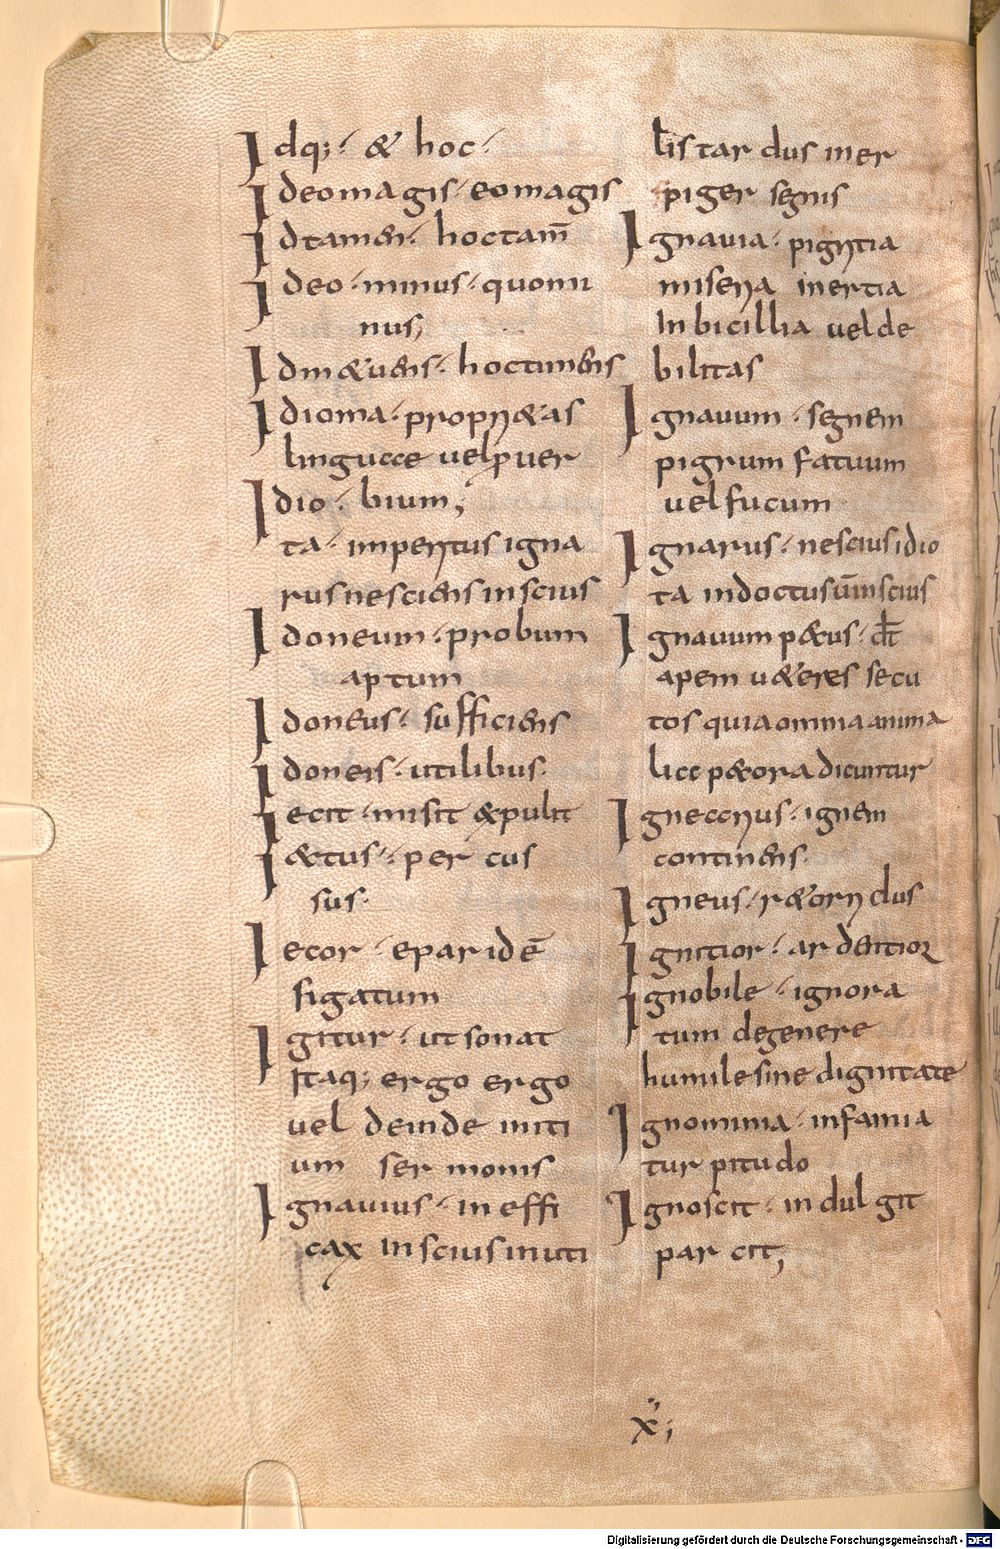 Idq; · & hoc ·
Ideo magis · eo magis
Idtamen · hoctam̄
Ideo · minus · quomi
nus;
Idin&uens · hoctinens
Idioma · propri&as
linguae uel ꝓuer
Idio · bium;
ta · imperitus igna
rus nesciens inscius
Idoneum · probum
aptum
Idoneus · sufficiens
Idoneis · utilibus ·
Iecit · misit expulit
I&tus · per cus
sus ·
Iecor · epar idē
figatum
Igitur · ut sonat
Itaq; ergo ergo
uel deinde initi
um ser monis
Ignauius · in effi
cax inscius inuti
lis tar dus iner
piger segnis
Ignauia · pigritia
miseria inertia
Inbicillia uel de
bilitas
Ignauum · segnem
pigrum fatuum
uel fucum
Ignarus · nescius idio
ta indoctus inscius
Ignauum p&us ·
apem u&eres secu
tos quia omnia anima
lia p&ora dicuntur
Ignearius · ignem
continens ·
Igneus · r&ori dus
Ignitior · ar dentior
Ignobile · ignora
tum degenere
humile sine dignitate
Ignominia · infamia
tur pitudo
Ignoscit · in dul git
par cit;
x;
Digitalisierung gefördert durch die Deutsche Forschungsgemeinschaft - DFG